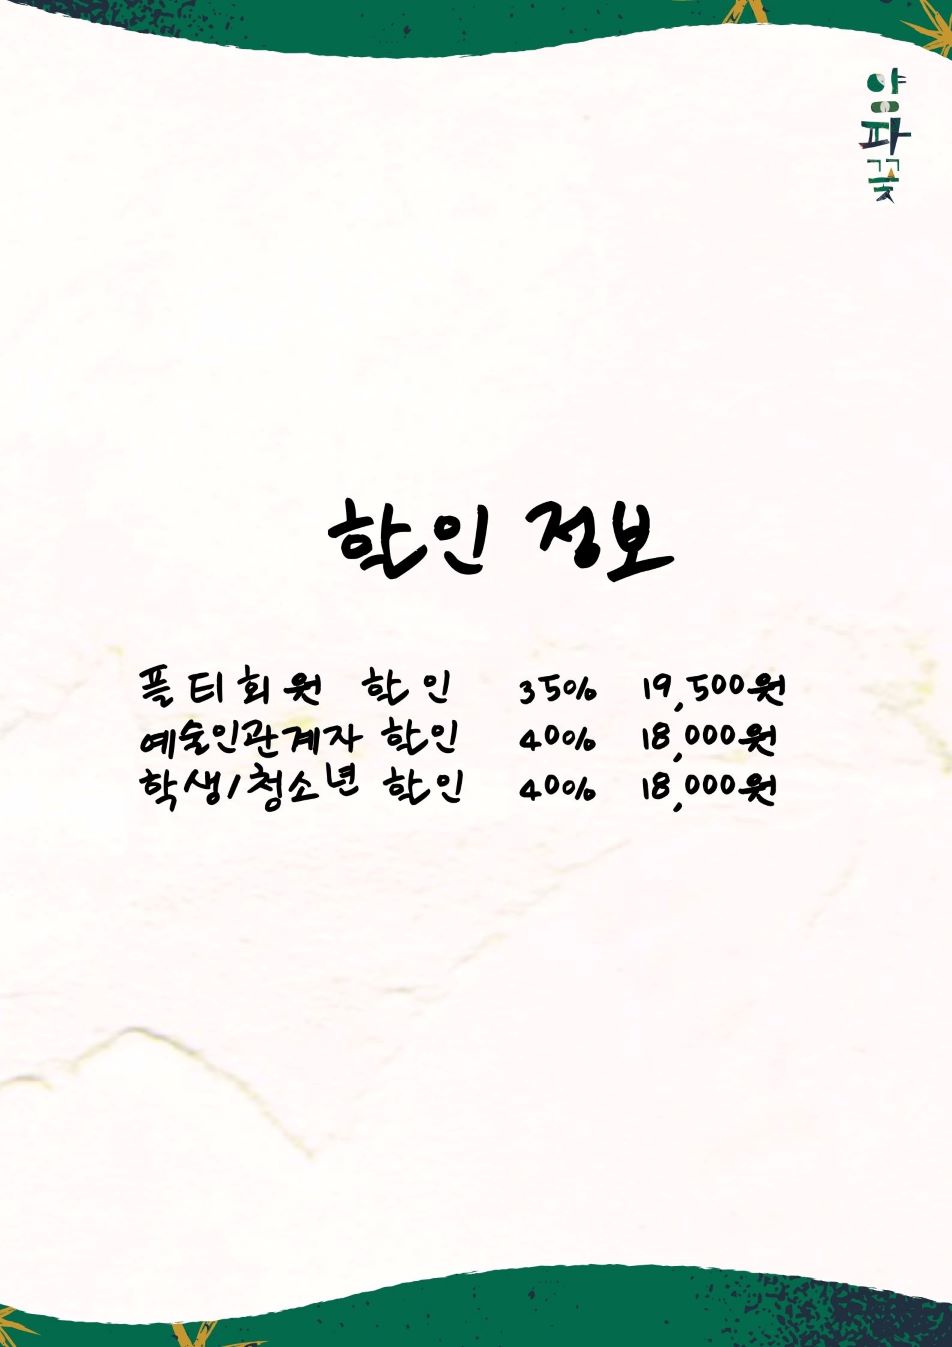 양파꽃
할인 정보
플티회원 할인 35% 19,500원
예술인관계자 할인 40% 18,000원
학생/청소년 할인 40% 18,000원